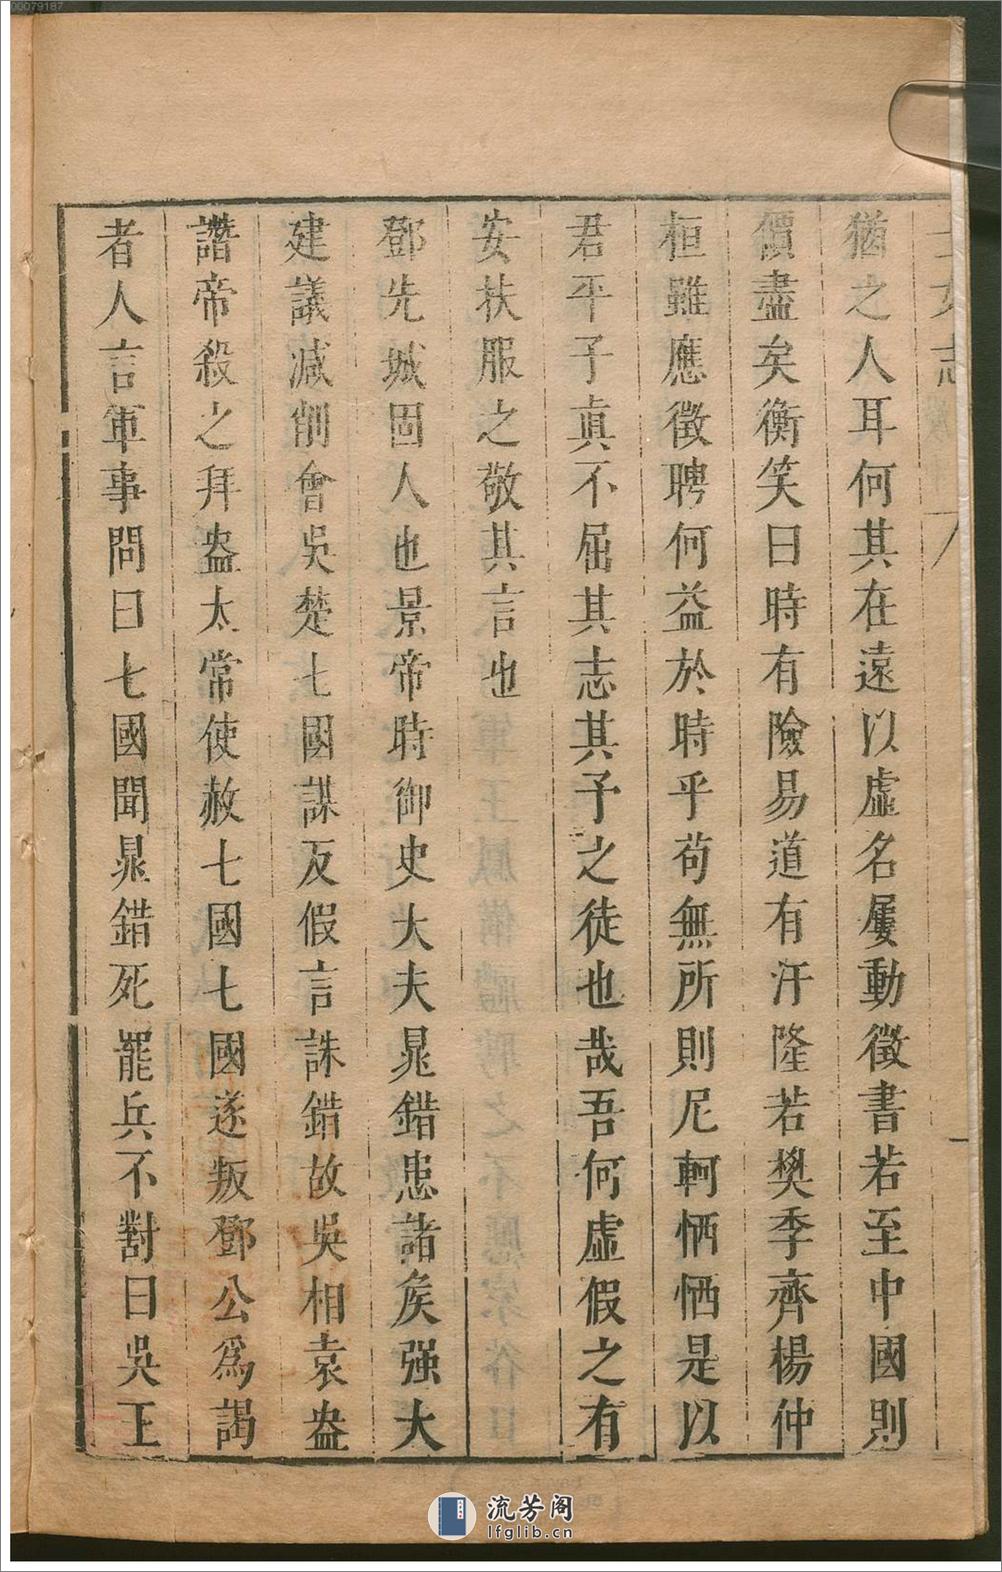 00079187
士女志
猶之人耳何其在遠以虛名屢動徵書若至中國則
價盡矣衡笑曰時有險易道有汙隆若樊季齊楊仲
桓雖應徵聘何益於時乎苟無所則尼軻恓恓是以
君平子真不屈其志其予之徒也哉吾何虛假之有
安扶服之敬其言也
鄧先城固人也景帝時御史大夫晁錯患諸矦强大
建議減削會吳楚七國謀反假言誅錯故吳相袁盎
譖帝殺之拜盎太常使赦七國七國遂叛鄧公為謁
者人言軍事問曰七國聞晁錯死罷兵不對曰吳王
流芳阁
lfglib.cn